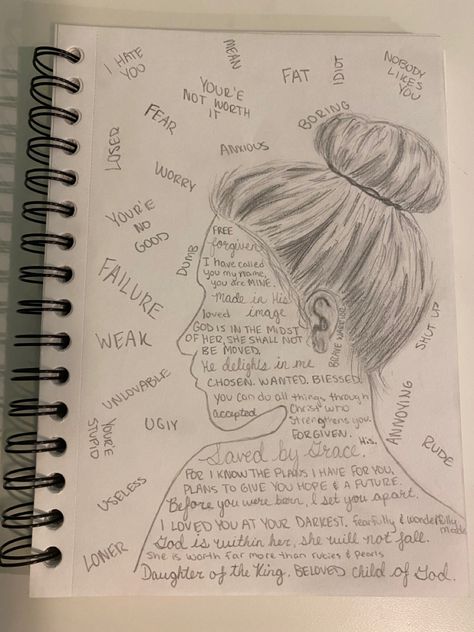 I HATE
YOU
MEAN
FAT
IDIOT
NOBODY
LIKES
YOU
YOUR'E
NOT WORTH
IT
FEAR
BORING
LOSER
ANXIOUS
WORRY
YOUR'E
NO
GOOD
DUMB
FAILURE
WEAK
UNLOVABLE
UGLY
YOUR'E
STUPID
USELESS
LONER
SHUT UP
ANNOYING
RUDE
FREE
forgiven
I have called
you my name,
you are MINE.
Made in His
loved image
GOD IS IN THE MIDST
OF HER, SHE SHALL NOT
BE MOVED.
He delights in me
CHOSEN. WANTED. BLESSED.
you can do all things through
Christ who
accepted
strengthens you.
FORGIVEN.
His.
BRAVE WARRIOR
Saved by Grace.
FOR I KNOW THE PLANS I HAVE FOR YOU,
PLANS TO GIVE YOU HOPE & A FUTURE.
Before you were born, I set you apart.
I LOVED YOU AT YOUR DARKEST. fearfully & wonderfully
made
God is within her, she will not fall.
She is worth far more than rubies & pearls
Daughter of the King. BELOVED child of God.